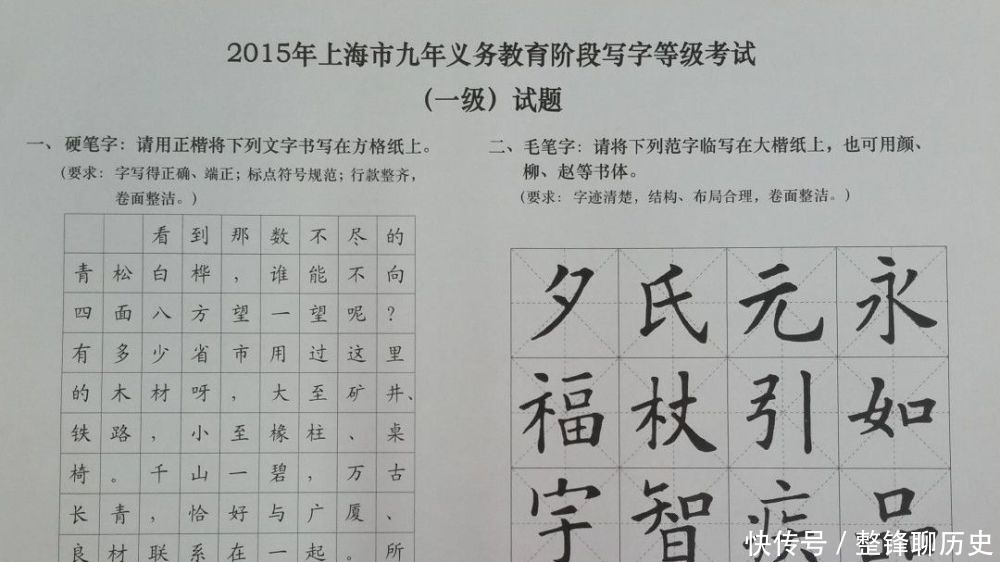 2015年上海市九年义务教育阶段写字等级考试
（一级）试题
一、硬笔字：请用正楷将下列文字书写在方格纸上。
（要求：字写得正确、端正；标点符号规范；行款整齐，
卷面整洁。）
看到那数不尽的
青松白桦，谁能不向
四面八方望一望呢？
有多少省市用过这里
的木材呀，大至矿井、
铁路，小至椽柱、桌
椅。千山一碧，万古
长青，恰好与广厦、
良材联系在一起。所
二、毛笔字：请将下列范字临写在大楷纸上，也可用颜、
柳、赵等书体。
（要求：字迹清楚，结构、布局合理，卷面整洁。）
夕氏元永
福杖引如
宇智疾品
快传号/整锋聊历史